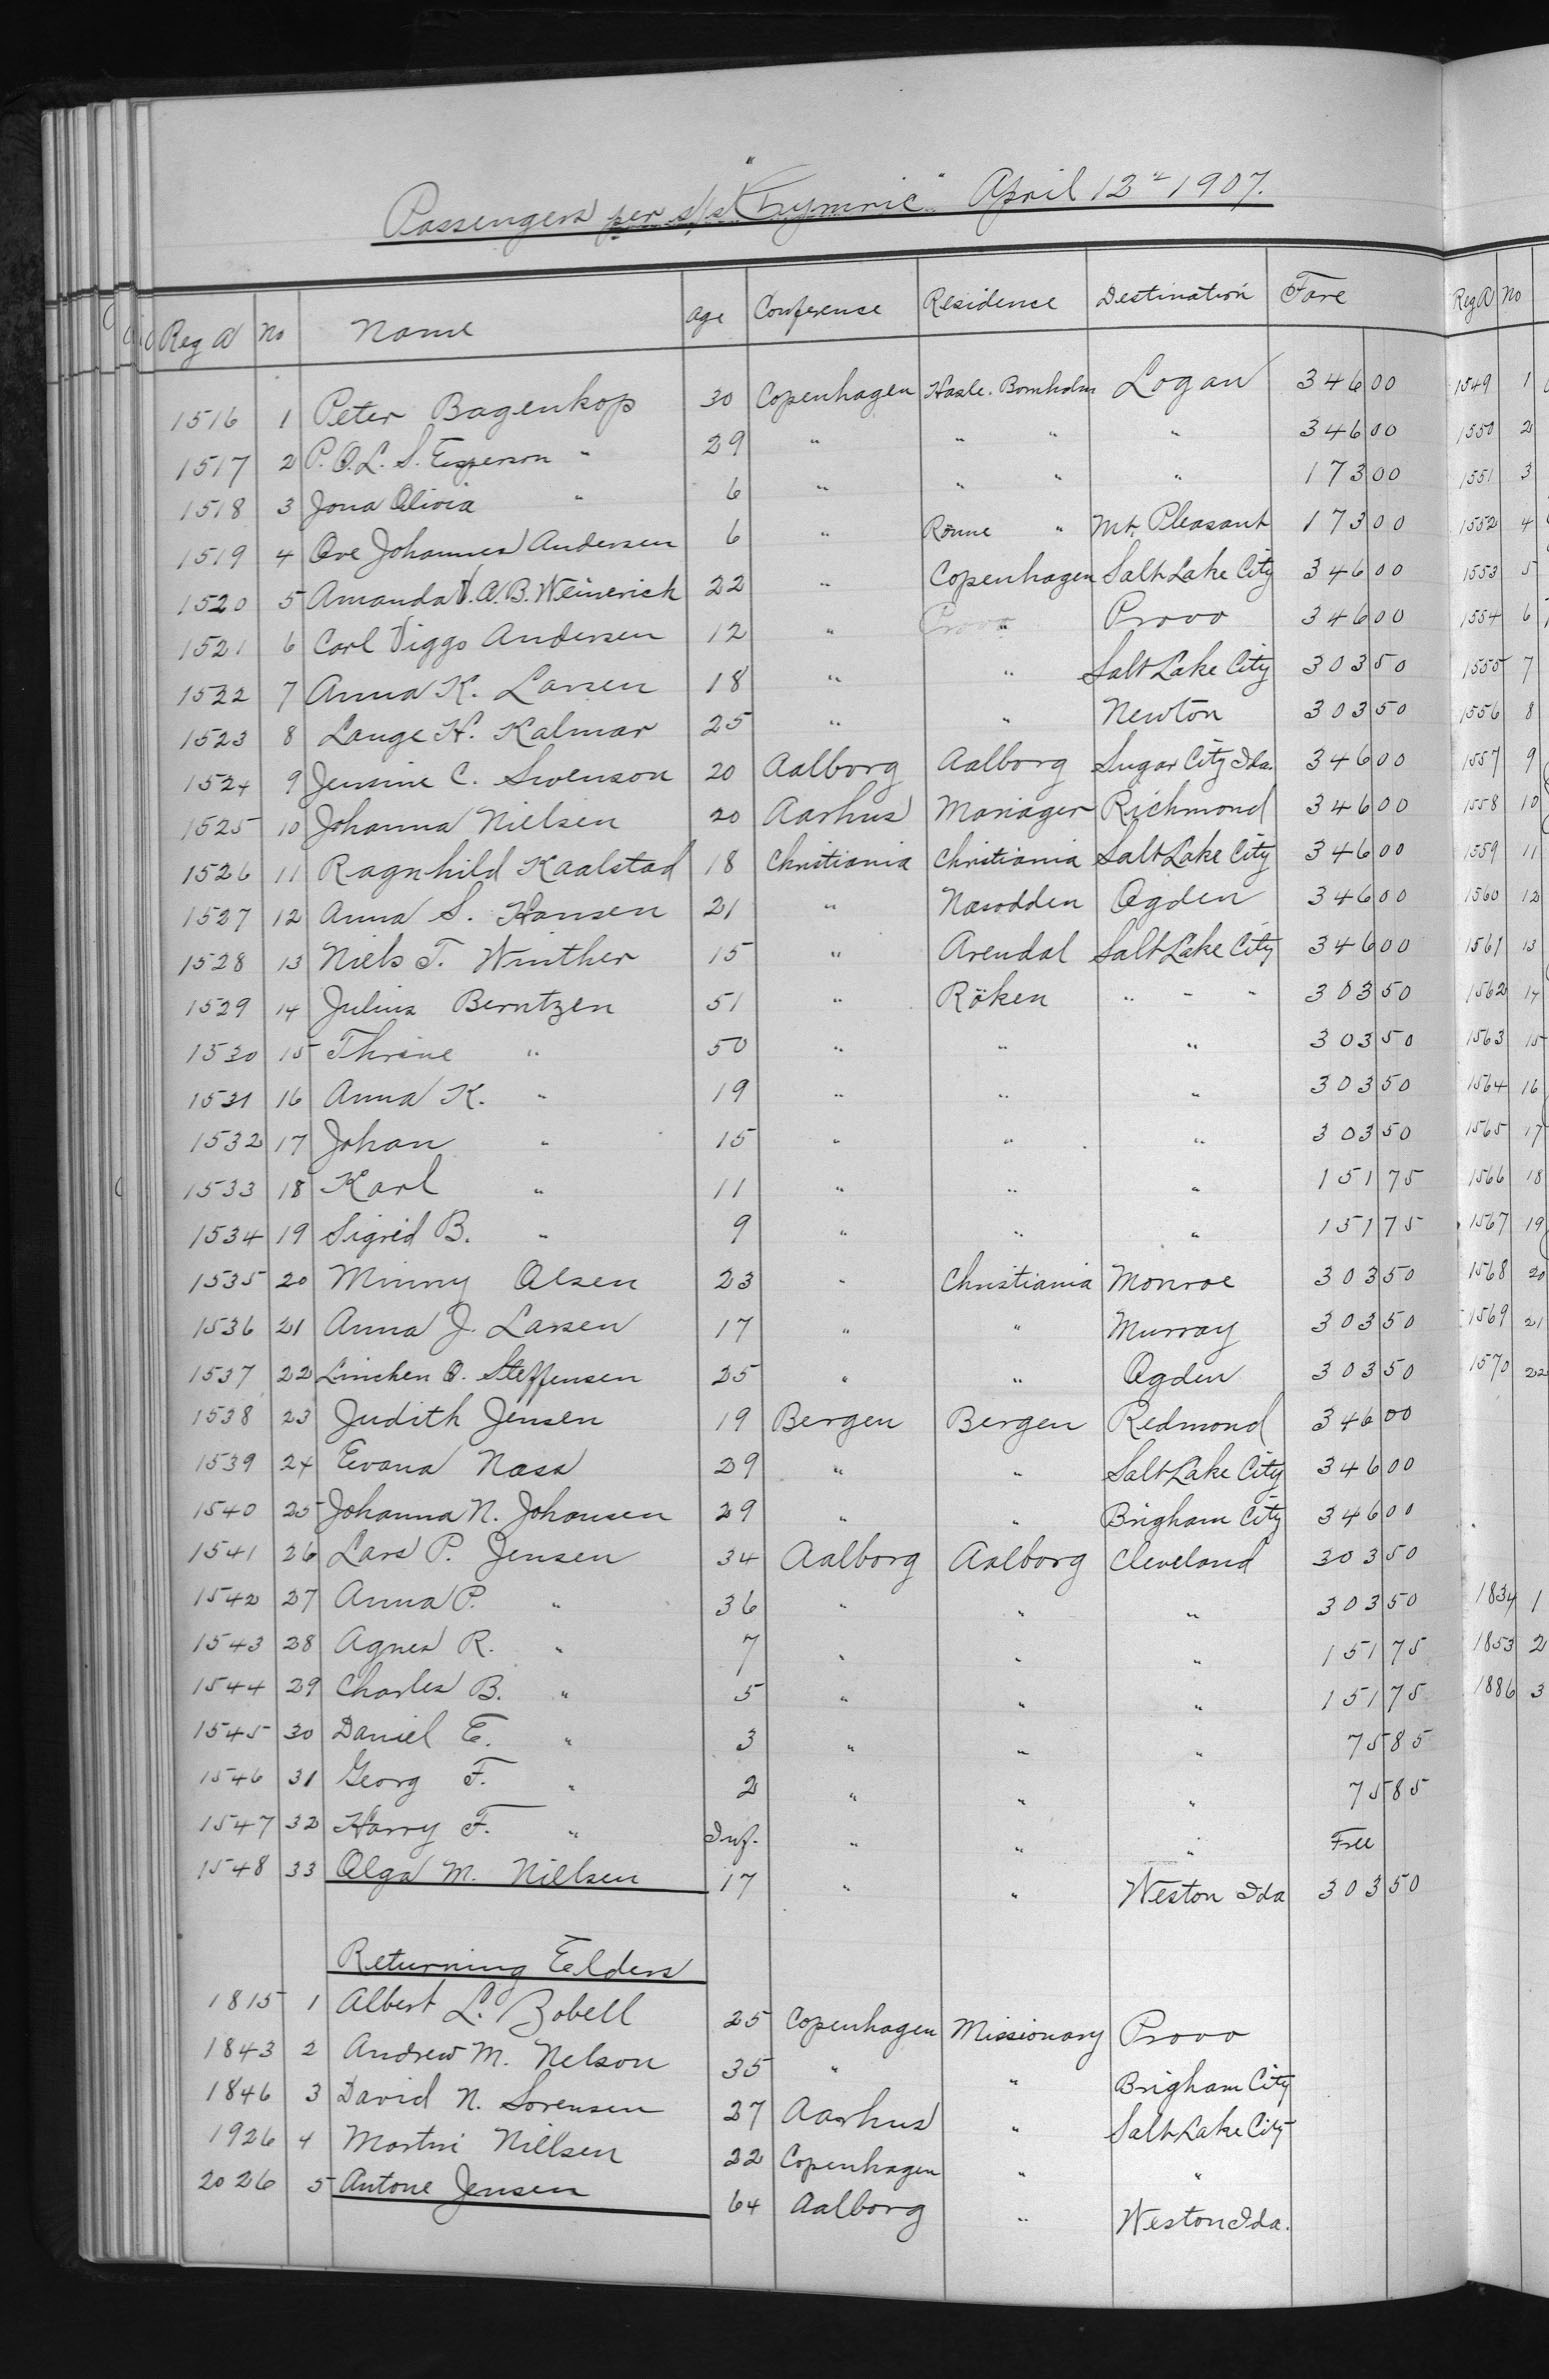 Passengers per s/s "Cymric" April 12" 1907.
Reg A No Name age Conference Residence Destination Fare
1516 1 Peter Bagenkop 30 Copenhagen Hasle. Bornholm Logan 346 00
1517 2 P. O. L. S. Esperson " 29 " " " " 346 00
1518 3 Jona Olivia " 6 " " " " 173 00
1519 4 Ove Johannes Andersen 6 " Rönne " Mt. Pleasant 173 00
1520 5 Amanda V. A. B. Weinerich 22 " Copenhagen Salt Lake City 346 00
1521 6 Carl Viggo Andersen 12 " " Provo 346 00
1522 7 Anna K. Larsen 18 " " Salt Lake City 303 50
1523 8 Lauge H. Kalmar 25 " " Newton 303 50
1524 9 Jensine C. Swenson 20 Aalborg Aalborg Sugar City Ida. 346 00
1525 10 Johanna Nielsen 20 Aarhus Mariager Richmond 346 00
1526 11 Ragnhild Kaalstad 18 Christiania Christiania Salt Lake City 346 00
1527 12 Anna S. Hansen 21 " Nasodden Ogden 346 00
1528 13 Niels T. Winther 15 " Arendal Salt Lake City 346 00
1529 14 Julius Berntzen 51 " Röken " " " 303 50
1530 15 Thrine " 50 " " " 303 50
1531 16 Anna K. " 19 " " " 303 50
1532 17 Johan " 15 " " " 303 50
1533 18 Karl " 11 " " " 151 75
1534 19 Sigrid B. " 9 " " " 151 75
1535 20 Minny Olsen 23 " Christiania Monroe 303 50
1536 21 Anna J. Larsen 17 " " Murray 303 50
1537 22 Linchen O. Steffensen 25 " " Ogden 303 50
1538 23 Judith Jensen 19 Bergen Bergen Redmond 346 00
1539 24 Evana Nass 29 " " Salt Lake City 346 00
1540 25 Johanna N. Johansen 29 " " Brigham City 346 00
1541 26 Lars P. Jensen 34 Aalborg Aalborg Cleveland 303 50
1542 27 Anna P. " 36 " " " 303 50
1543 28 Agnes R. " 7 " " " 151 75
1544 29 Charles B. " 5 " " " 151 75
1545 30 Daniel E. " 3 " " " 75 85
1546 31 Georg F. " 2 " " " 75 85
1547 32 Harry F. " Inf. " " " Free
1548 33 Olga M. Nielsen 17 " " Weston Ida 303 50
Returning Elders
1815 1 Albert L. Zobell 25 Copenhagen Missionary Provo
1843 2 Andrew M. Nelson 35 " " Brigham City
1846 3 David N. Sorensen 27 Aarhus " Salt Lake City
1926 4 Martin Nielsen 22 Copenhagen " "
2026 5 Antone Jensen 64 Aalborg " Weston Ida.
Reg A No
1549 1
1550 2
1551 3
1552 4
1553 5
1554 6
1555 7
1556 8
1557 9
1558 10
1559 11
1560 12
1561 13
1562 14
1563 15
1564 16
1565 17
1566 18
1567 19
1568 20
1569 21
1570 22
1834 1
1853 2
1886 3